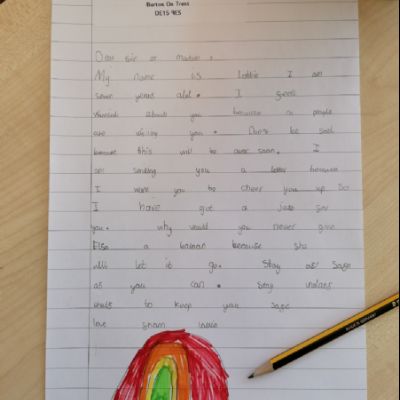 Burton On Trent
DE15 9ES
Dear sir or madam
My name is Lottie I am
seven years old. I feel
about you because no people
are visiting you. Don't be sad
because this will be over soon. I
am sending you a letter because
I want you to cheer you up So
I have got a joke for
you. why would you never give
Elsa a baloon because she
will let it go. Stay as safe
as you can. Stay indoors
to keep you safe
love from